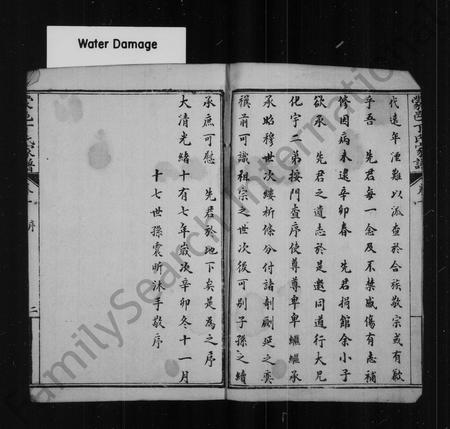 Water Damage
代遠年湮難以溯查於合族敬宗或有歉
乎吾 先君每一念及不禁感傷有志補
修因病未逮辛卯春 先君捐館余小子
欲承 先君之遺志於是邀同道行大兄
化宇二弟按門查序使尊尊卑卑繼繼承
承昭穆世次縷析條分付諸剞劂延之奕
禩前可識祖宗之世次後可別子孫之續
承庶可慰 先君於地下矣是為之序
大清光緒十有七年歲次辛卯冬十一月
十七世孫震昕沐手敬序
序
二
FamilySearch International